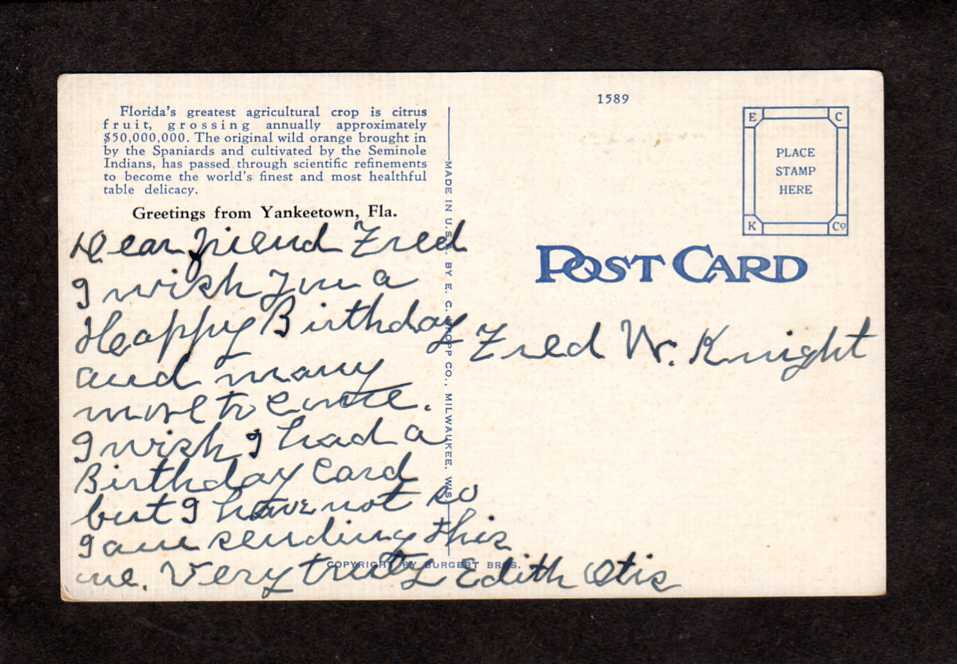 Florida's greatest agricultural crop is citrus
fruit, grossing annually approximately
$50,000,000. The original wild orange brought in
by the Spaniards and cultivated by the Seminole
Indians, has passed through scientific refinements
to become the world's finest and most healthful
table delicacy.
Greetings from Yankeetown, Fla.
Dear friend Fred
I wish you a
Happy Birthday
and many
more to come.
I wish I had a
Birthday Card
but I have not so
I am sending this
one. Very truly Edith Otis
COPYRIGHT BY BURGERT BROS.
MADE IN U.S.A. BY E. C. KROPP CO., MILWAUKEE, WIS.
1589
E C
PLACE
STAMP
HERE
K Co
POST CARD
Fred W. Knight